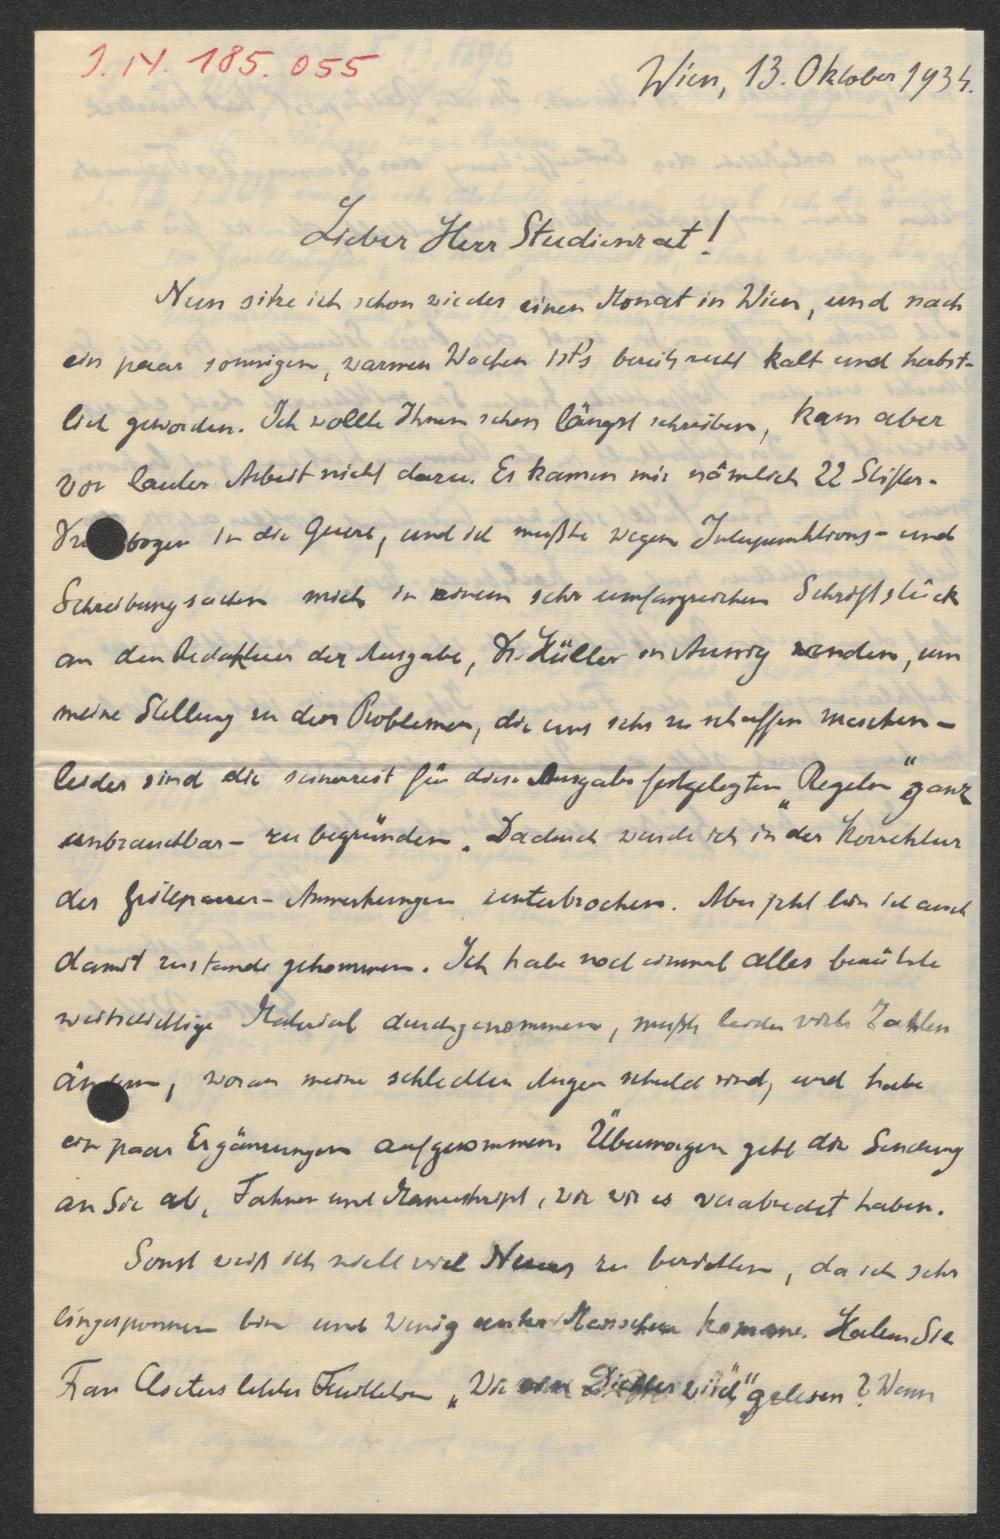 I.N. 185.055
Wien, 13. Oktober 1934.
Lieber Herr Studienrat!
Nun sitze ich schon wieder einen Monat in Wien, und nach
ein paar sonnigen, warmen Wochen ist's bereits recht kalt und herbst-
lich geworden. Ich wollte Ihnen schon längst schreiben, kam aber
vor lauter Arbeit nicht dazu. Es kamen mir nämlich 22 Stifter-
bogen in die Quere, und ich mußte wegen Interpunktions- und
Schreibungsachen mich in einem sehr umfangreichen Schriftstück
an den Redakteur der Ausgabe, Dr. Hüller in Aussig wenden, um
meine Stellung zu den Problemen, die uns sehr zu schaffen machen -
leider sind die seinerzeit für diese Ausgabe festgelegten „Regeln" ganz
unbrauchbar - zu begründen. Dadurch wurde ich in der Korrektur
der Grillparzer-Anmerkungen unterbrochen. Aber jetzt bin ich auch
damit zustande gekommen. Ich habe noch einmal alles benützte
weitschichtige Material durchgenommen, mußte leider viele Zahlen
ändern, woran meine schlechten Augen schuld sind, und habe
ein paar Ergänzungen aufgenommen. Übermorgen geht die Sendung
an Sie ab, Fahnen und Manuskript, wie wir es verabredet haben.
Sonst weiß ich nicht viel Neues zu berichten, da ich sehr
eingesponnen bin und wenig unter Menschen komme. Haben Sie
Frau letztes Feuilleton „Wie man Dichter wird" gelesen? Wenn